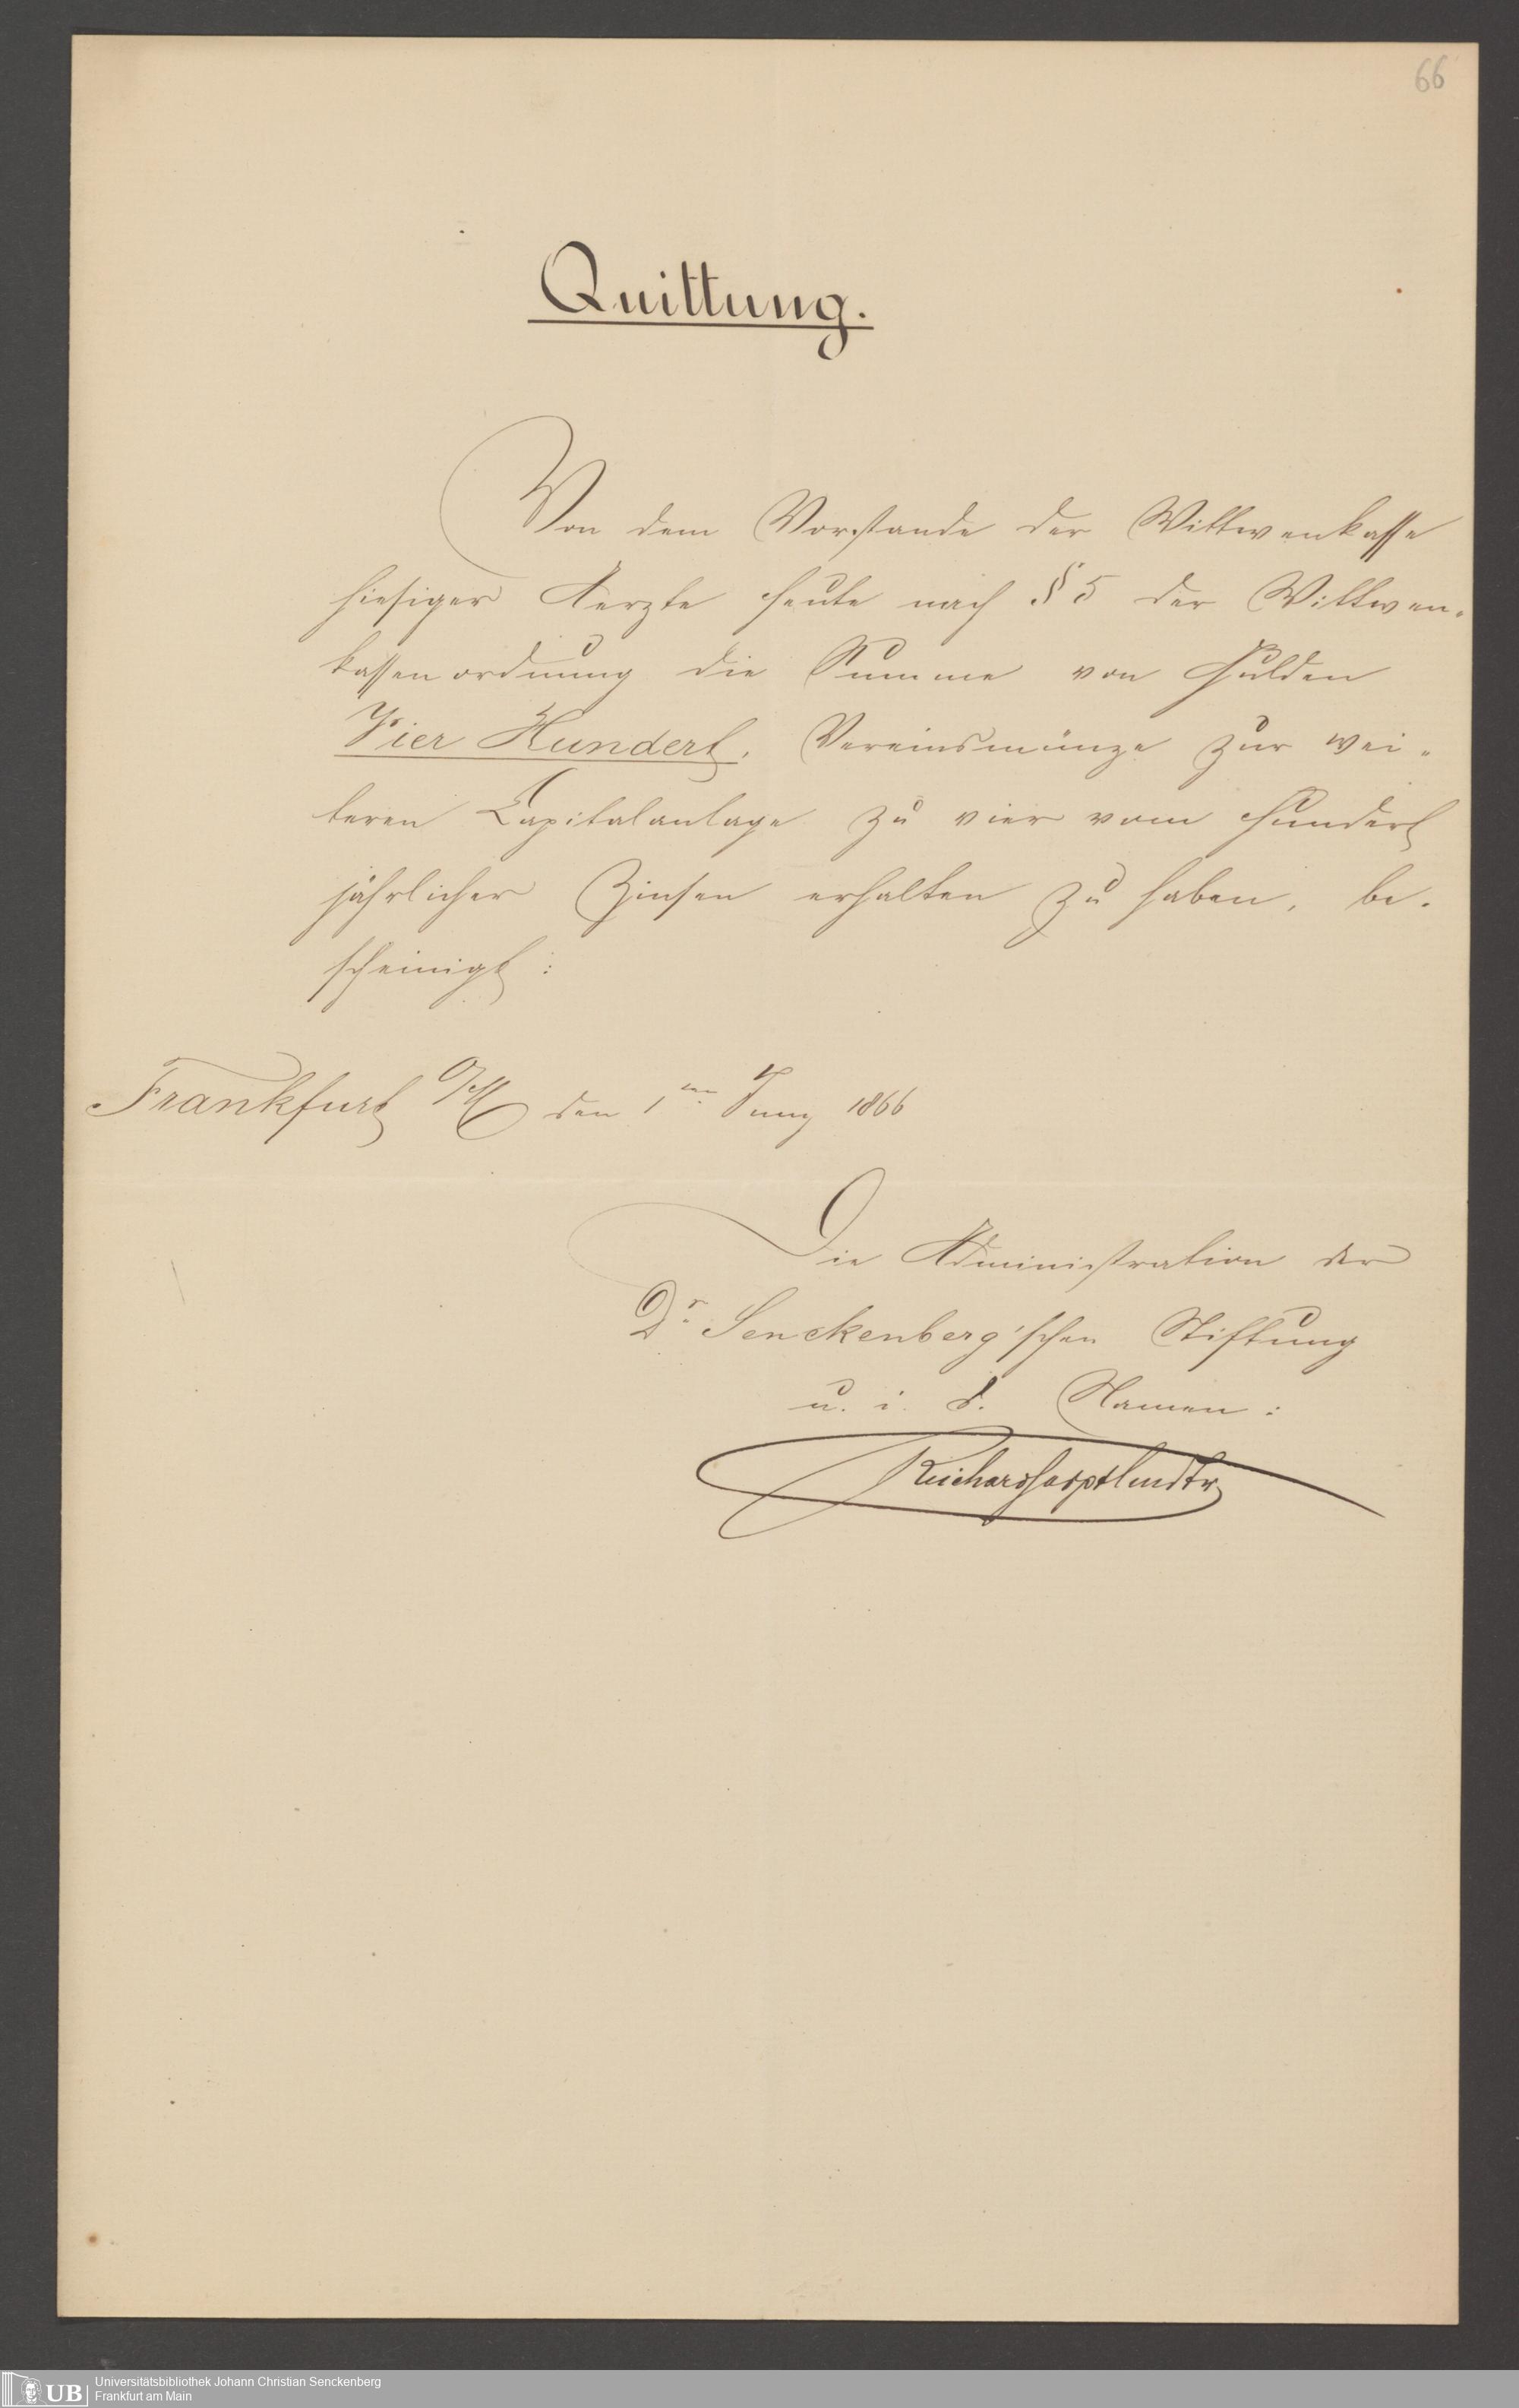 66
Quittung.
Von dem Vorstande der Wittwenkasse
hiesiger Aerzte heute nach § 5 der Wittwen-
kassenordnung die Summe von Gulden
Vier Hundert, Vereinsmünze zur wei-
teren Capitalanlage zu vier vom Hundert
jährlicher Zinsen erhalten zu haben, be-
scheinigt:
Frankfurt a/M den 1ten Juny 1866
Die Administration der
Dr. Senckenberg'schen Stiftung
u. i. d. Namen:
UB Universitätsbibliothek Johann Christian Senckenberg
Frankfurt am Main